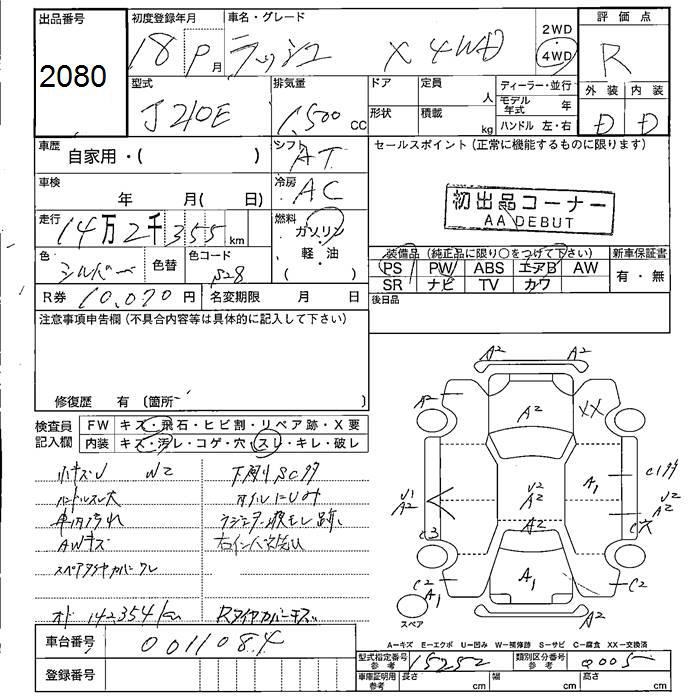 出品番号 初度登録年月 車名・グレード 2WD 評価点
2080 18 P 月 ラッシュ X 4WD ・4WD R
型式 排気量 ドア 定員 人 ディーラー・並行 外装 内装
J210E 1,500 cc 形状 積載 kg モデル年式 年 D D
ハンドル 左・右
車歴 自家用・( ) シフト AT セールスポイント (正常に機能するものに限ります)
車検 年 月( 日) 冷房 AC 初出品コーナー
AA DEBUT
走行 14万2千355km 燃料 ガソリン
軽・油
( )
色 シルバー 色替 色コード S28
装備品 (純正品に限り○をつけて下さい) 新車保証書
PS PW ABS エアB AW 有・無
SR ナビ TV カワ
R券 10,070円 名変期限 月 日 後日品
注意事項申告欄 (不具合内容等は具体的に記入して下さい)
修復歴 有 (箇所 )
検査員記入欄 FW キス・飛石・ヒビ割・リペア跡・X要
内装 キズ・汚レ・コゲ・穴・スレ・キレ・破レ
W2 下廻りSCサ
ハンドルスレ大 オイルにじみ
車内汚れ ラジエター液もレ跡
AWキズ 右インパネ
スペアタイヤカバーワレ
オド 142,354km Rタイヤカバーキズ
A2 A2
A2 A2 XX
A1 C1サ
U1
A2 U2
A2 U2
A2
C3 A2 C穴
C2
A1 A1 C2
スペア A2
A−キズ E−エクボ U−凹み W−補修跡 S−サビ C−腐食 XX−交換済
車台番号 0011084 型式指定番号 参考 15252 類別区分番号 参考 0005
登録番号 車庫証明用 参考 長さ cm 幅 cm 高さ cm